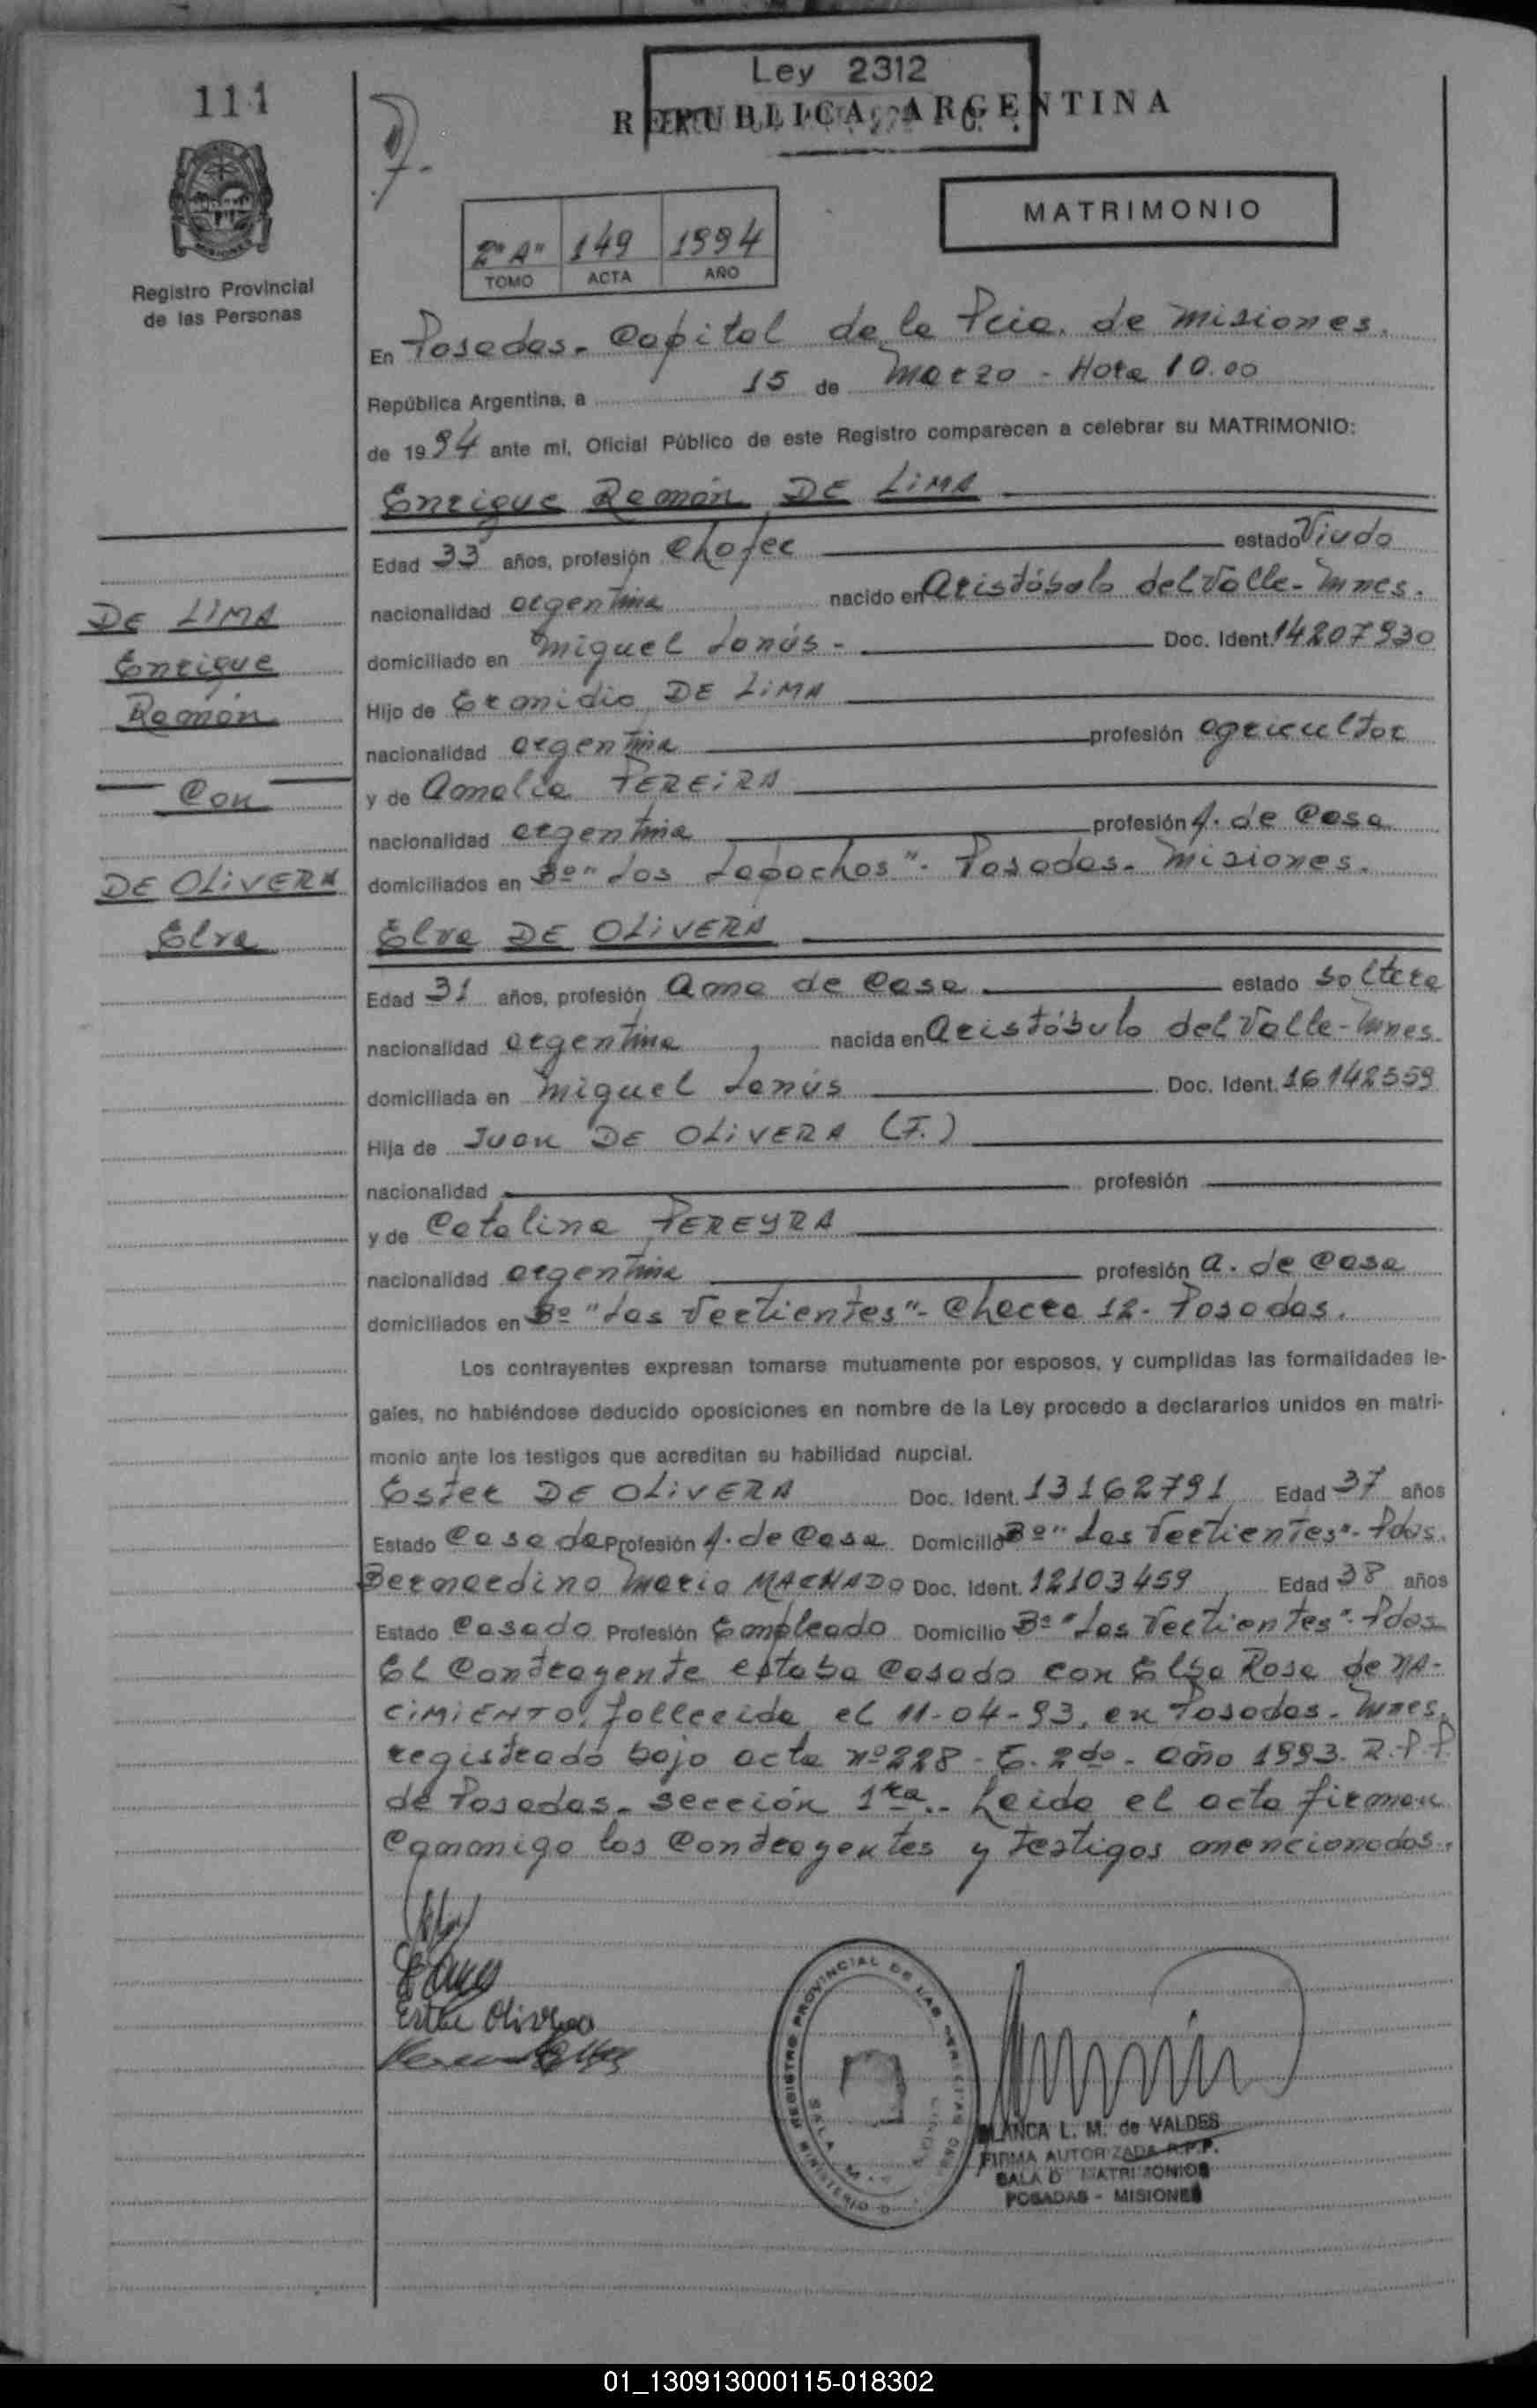 111
Ley 2312
REPUBLICA ARGENTINA
MATRIMONIO
2º"A" 149 1994
TOMO ACTA AÑO
Registro Provincial
de las Personas
En Posadas - Capital de la Pcia. de Misiones.
República Argentina, a 15 de Marzo - Hora 10.00
de 1994 ante mí, Oficial Público de este Registro comparecen a celebrar su MATRIMONIO:
Enrique Ramón DE LIMA
Edad 33 años, profesión Chofer estado Viudo
nacionalidad argentina nacido en Aristóbulo del Valle - Mnes.
domiciliado en Miguel Lanús - Doc. Ident. 14207930
Hijo de Eromidio DE LIMA
nacionalidad argentina profesión agricultor
y de Amalia PEREIRA
nacionalidad argentina profesión A. de Casa
domiciliados en Bº "Los Lapachos" - Posadas - Misiones.
DE LIMA
Enrique
Ramón
Con
DE OLIVERA
Elva
Elva DE OLIVERA
Edad 31 años, profesión Ama de Casa estado soltera
nacionalidad argentina nacida en Aristóbulo del Valle - Mnes.
domiciliada en Miguel Lanús Doc. Ident. 16142559
Hija de Juan DE OLIVERA (F.)
nacionalidad profesión
y de Catalina PEREYRA
nacionalidad argentina profesión A. de Casa
domiciliados en Bº "Las Vertientes" - Chacra 12 - Posadas.
Los contrayentes expresan tomarse mutuamente por esposos, y cumplidas las formalidades le-
gales, no habiéndose deducido oposiciones en nombre de la Ley procedo a declararlos unidos en matri-
monio ante los testigos que acreditan su habilidad nupcial.
Ester DE OLIVERA Doc. Ident. 13162791 Edad 37 años
Estado Casada Profesión A. de Casa Domicilio Bº "Las Vertientes" - Pdas.
Bernardino Mario MACHADO Doc. Ident. 12103459 Edad 38 años
Estado Casado Profesión Empleado Domicilio Bº "Las Vertientes" - Pdas
El Contrayente estaba Casado con Elsa Rosa de NA-
CIMIENTO, fallecida el 11-04-93, en Posadas - Mnes,
registrado bajo acta nº 228 - T. 2do - Año 1993. R.P.P.
de Posadas - sección 1ra.- Leida el acta firman
Conmigo los Contrayentes y Testigos mencionados.
Ester Olivera
REGISTRO PROVINCIAL DE LAS
BLANCA L. M. de VALDES
FIRMA AUTORIZADA R.P.P.
SALA D MATRIMONIOS
POSADAS - MISIONES
01_130913000115-018302